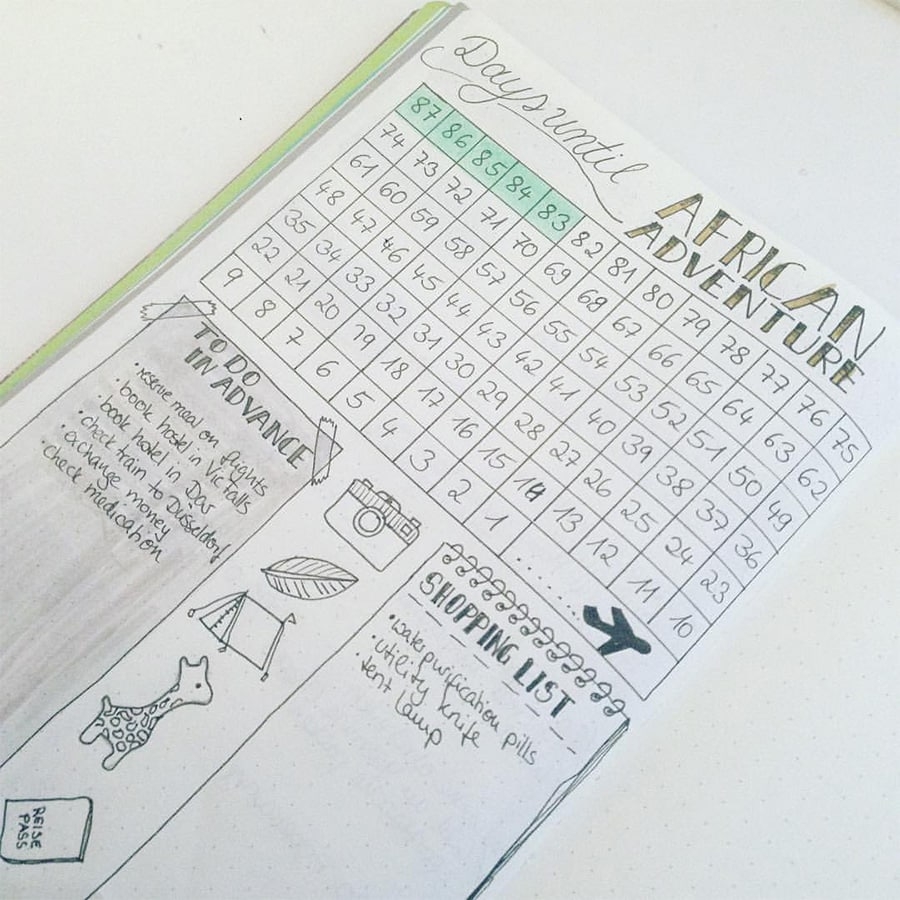 Days until
AFRICAN
ADVENTURE
87 86 85 84 83 82 81 80 79 78 77 76 75
74 73 72 71 70 69 69 67 66 65 64 63 62
61 60 59 58 57 56 55 54 53 52 51 50 49
48 47 46 45 44 43 42 41 40 39 38 37 36
35 34 33 32 31 30 29 28 27 26 25 24 23
22 21 20 19 18 17 16 15 14 13 12 11 10
9 8 7 6 5 4 3 2 1 ........
TO DO
IN ADVANCE
· reserve meal on flights
· book hostel in Vic Falls
· book hotel in Dar
· check train to Düsseldorf
· exchange money
· check medication
SHOPPING LIST
· waterpurification pills
· utility knife
· tent lamp
REISE
PASS